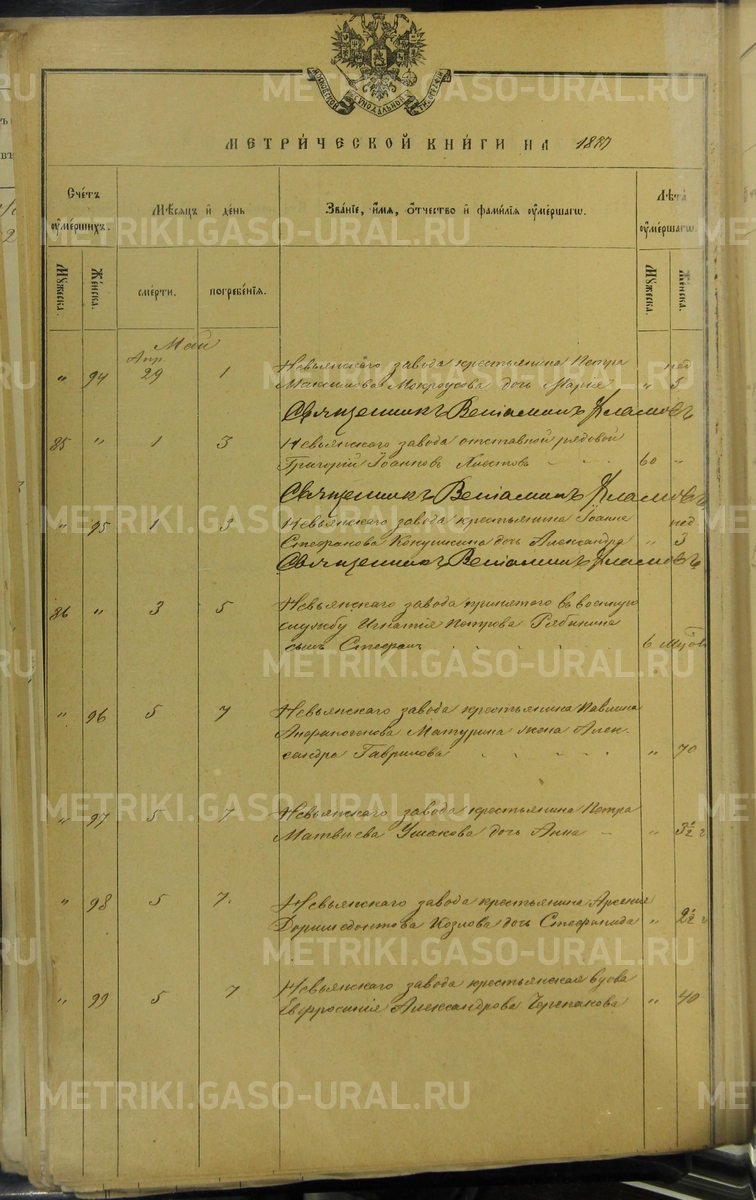 МЕТРИ́ЧЕСКОЙ КНИ́ГИ НА 1887
Счетъ оумершихъ.
Мѣсяцъ и день
Званіе, имя, отчество и фамилія оумершагѡ.
Лѣта оумершагѡ.
Мужеска.
Женска.
смерти.
погребенія.
Мужеска.
Женска.
Май
Апр.
" 94 29 1 Невьянскаго завода крестьянина Петра нед
Максимова Мокроусова дочь Марія " 5
Священникъ Веніаминъ
85 " 1 3 Невьянскаго завода отставной рядовой
Григорій Іоанновъ 60 "
Священникъ Веніаминъ
" 95 1 3 Невьянскаго завода крестьянина Іоанна нед
Стефанова Кокушкина дочь Александра " 3
Священникъ Веніаминъ
86 " 3 5 Невьянскаго завода принятого въ военную
службу Игнатія Петрова Рябинина
сынъ Стефанъ 6
" 96 5 7 Невьянскаго завода крестьянина Павлина
Матурина жена Алек-
сандра Гаврилова " 70
" 97 5 7 Невьянскаго завода крестьянина Петра
Матвѣева Ушакова дочь Анна "
" 98 5 7. Невьянскаго завода крестьянина Арсенія
Доримедонтова Козлова дочь Стефанида " 2½ г
" 99 5 7 Невьянскаго завода крестьянская вдова
Евфросинія Александрова Черепанова " 40
METRIKI.GASO-URAL.RU